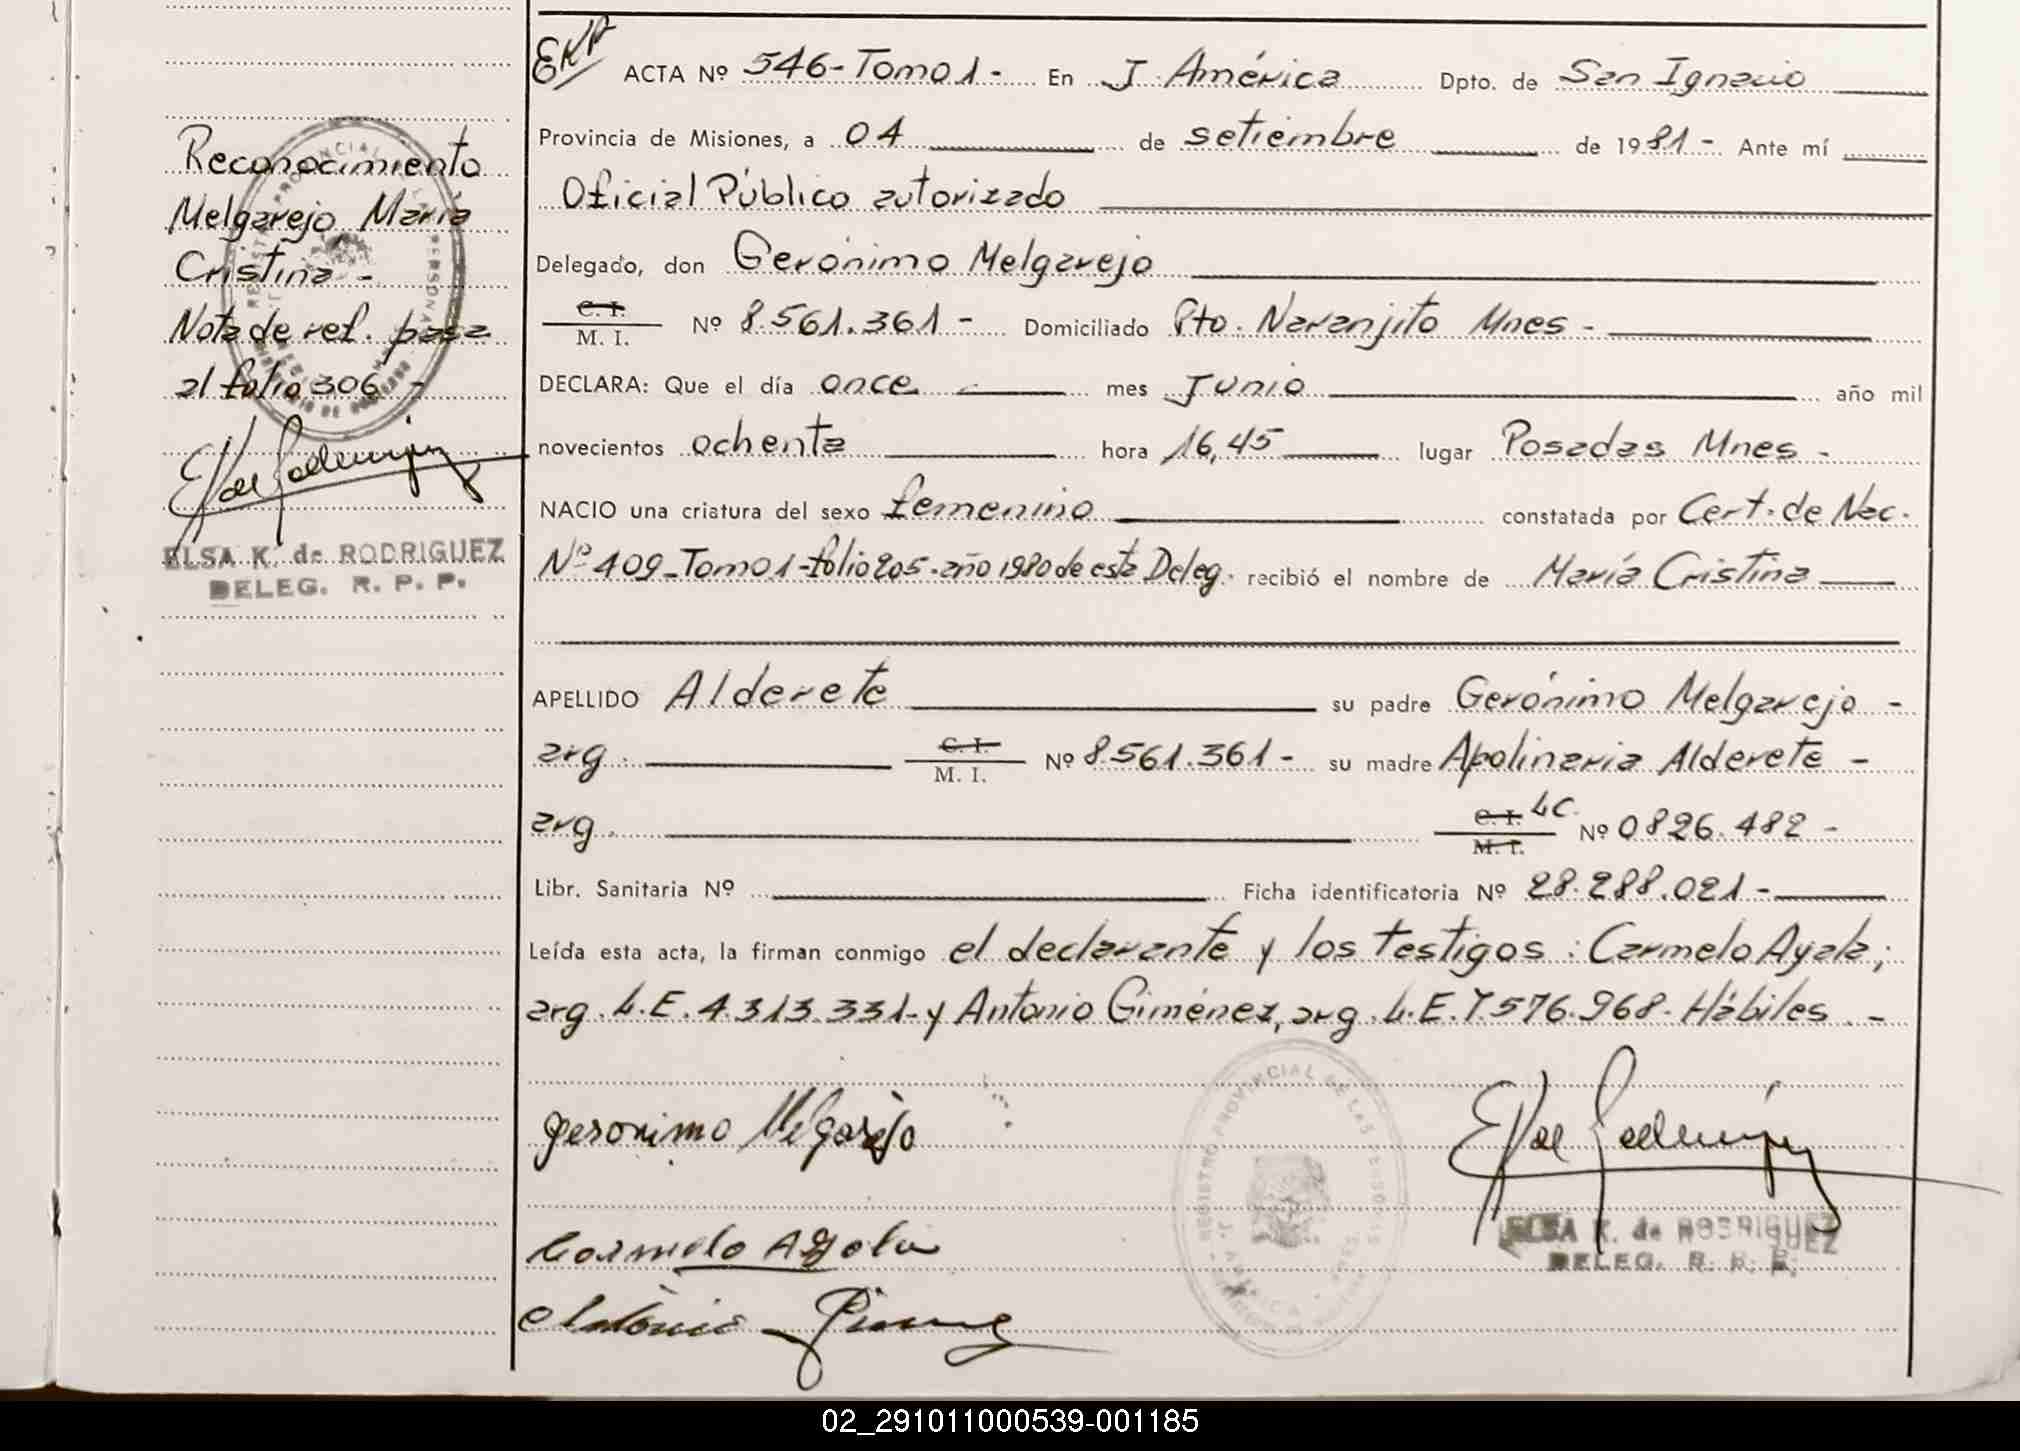 Reconocimiento
Melgarejo María
Cristina -
Nota de ref. pasa
al folio 306 -
ELSA K. de RODRIGUEZ
DELEG. R. P. P.
EKR
ACTA Nº 546-Tomo 1 - En J. América Dpto. de San Ignacio
Provincia de Misiones, a 04 de setiembre de 1981 - Ante mí
Oficial Público autorizado
Delegado, don Gerónimo Melgarejo
C. I.
M. I. Nº 8.561.361 - Domiciliado Pto. Naranjito Mnes -
DECLARA: Que el día once mes Junio año mil
novecientos ochenta hora 16,45 lugar Posadas Mnes -
NACIO una criatura del sexo femenino constatada por Cert. de Nac.
Nº 409_Tomo 1-folio 205-año 1980 de esta Deleg. recibió el nombre de María Cristina
APELLIDO Alderete su padre Gerónimo Melgarejo -
arg. C. I. M. I. Nº 8.561.361 - su madre Apolinaria Alderete -
arg. C. I. LC. M. I. Nº 0826.482 -
Libr. Sanitaria Nº Ficha identificatoria Nº 28.288.021 -
Leída esta acta, la firman conmigo el declarante y los testigos: Carmelo Ayala;
arg. L.E. 4.313.331- y Antonio Giménez, arg. L.E. 7.576.968- Hábiles. -
REGISTRO PROVINCIAL DE LAS PERSONAS
geronimo Melgarejo
Carmelo Ayala
Antonio Gimenez
ELSA K. de RODRIGUEZ
DELEG. R. P. P.
02_291011000539-001185